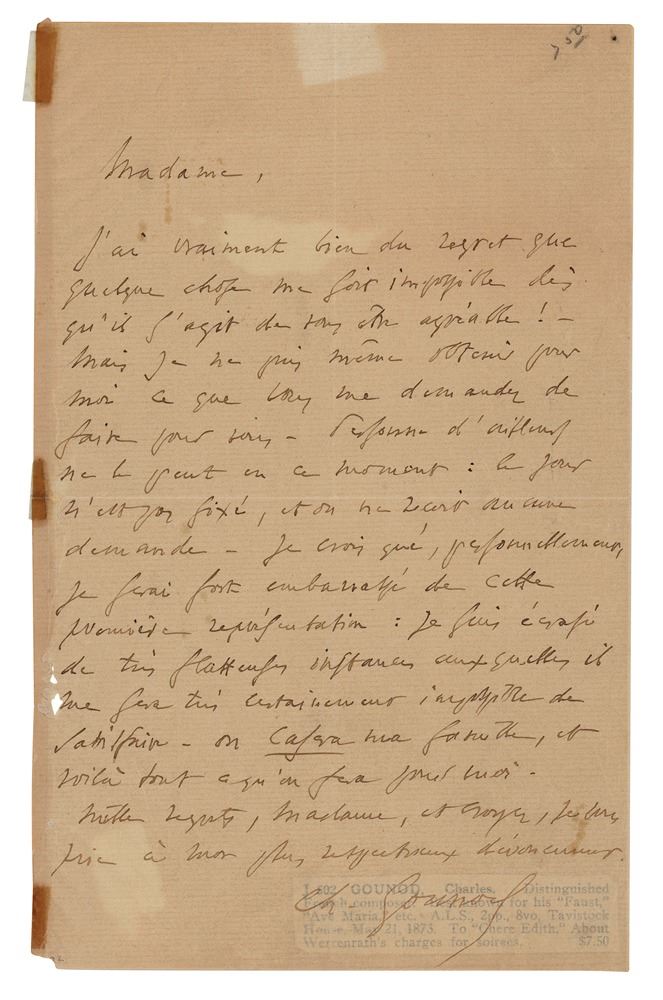 Madame,
J'ai vraiment bien du regret que
quelque chose me soit impossible dès
qu'il s'agit de vous être agréable ! -
Mais je ne puis même obtenir pour
moi ce que vous me demandez de
faire pour vous - Personne d'ailleurs
ne le peut en ce moment : le jour
n'est pas fixé, et on ne reçoit aucune
demande - Je crois que, personnellement,
je serai fort embarrassé de cette
première représentation : je suis écrasé
de très flatteuses instances auxquelles il
me sera très certainement impossible de
satisfaire - on casera ma famille, et
voilà tout ce qu'on fera pour moi -
Mille regrets, Madame, et croyez, je vous
prie à mon plus respectueux dévouement.
Ch. Gounod
J 502 GOUNOD, Charles. Distinguished
French composer, for his "Faust,"
"Ave Maria," etc. A.L.S., 2pp., 8vo, Tavistock
House, May 21, 1873. To "Chere Edith." About
Werrenrath's charges for soirees. $7.50